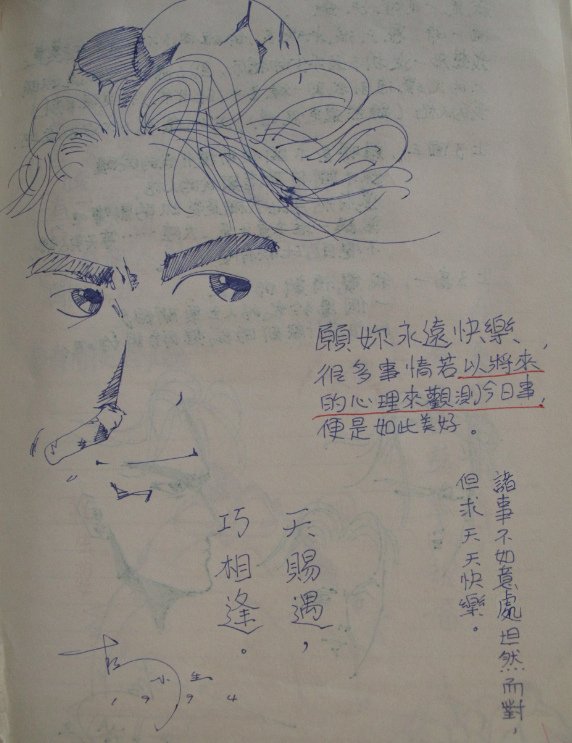 願妳永遠快樂、
很多事情若以將來
的心理來觀測今日事,
便是如此美好。
諸事不如意處坦然而對,
但求天天快樂。
天賜遇,
巧相逢。
小生
1994